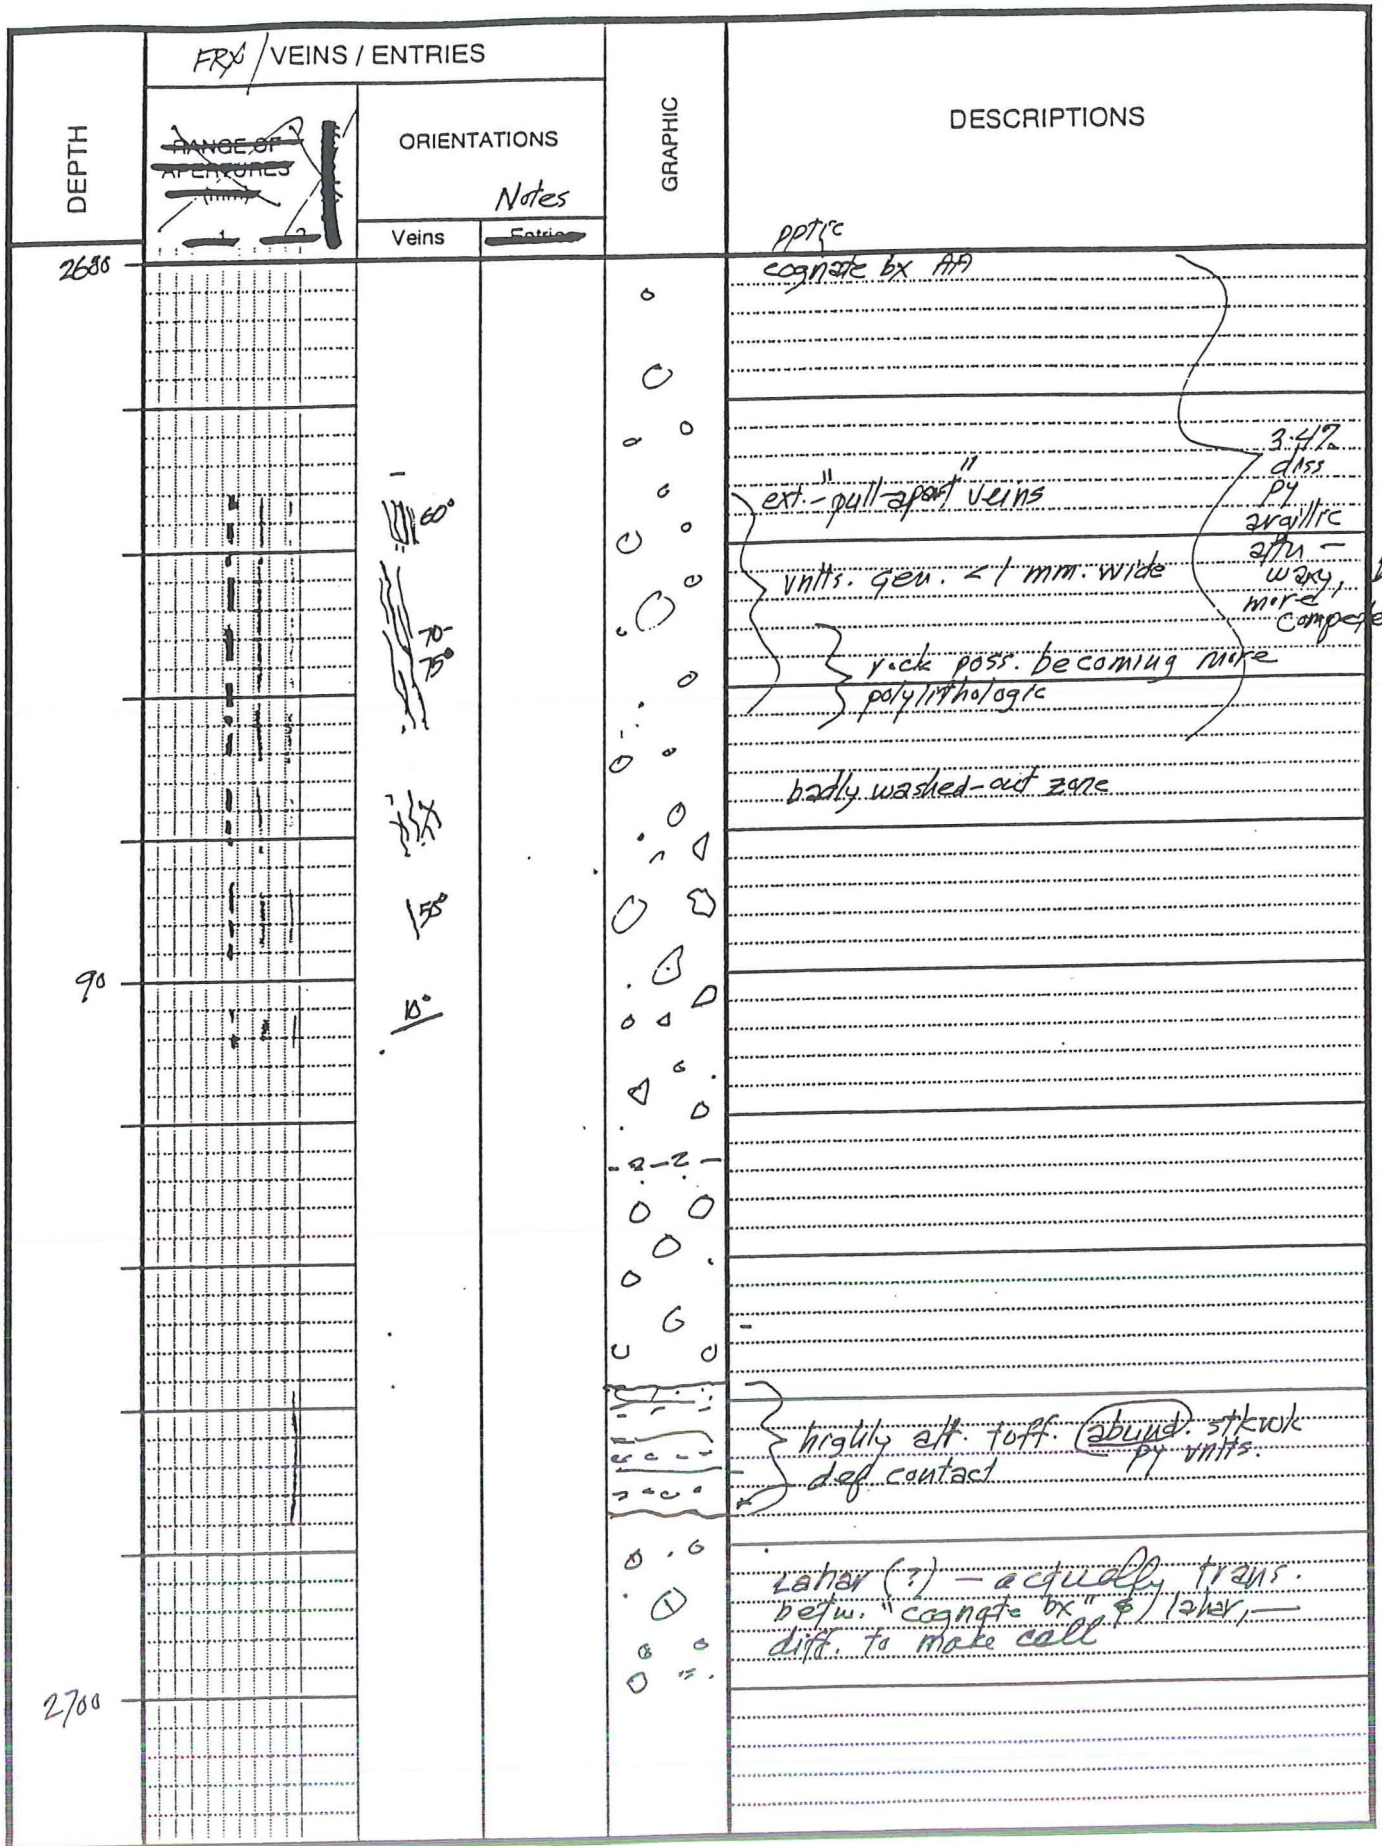 FRX / VEINS / ENTRIES
DEPTH
RANGE OF
APERTURES
(mm)
ORIENTATIONS
Notes
Veins
Entries
GRAPHIC
DESCRIPTIONS
2680
pptic
cognate bx AA
3-4%
diss
py
argillic
altn -
waxy,
more
compete
ext. - "pull-apart" veins
60°
vnlts. gen. < 1 mm. wide
70-
75°
rock poss. becoming more
polylithologic
badly washed-out zone
50°
90
10°
highly alt. tuff. abund. stkwk
py vnlts.
def contact
Lahar (?) - actually trans.
betw. "cognate bx" & lahar, -
diff. to make call
2700